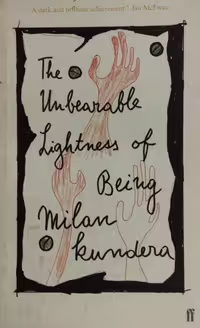 'A dark and brilliant achievement' Ian McEwan
The
Unbearable
Lightness of
Being
Milan
Kundera
ff